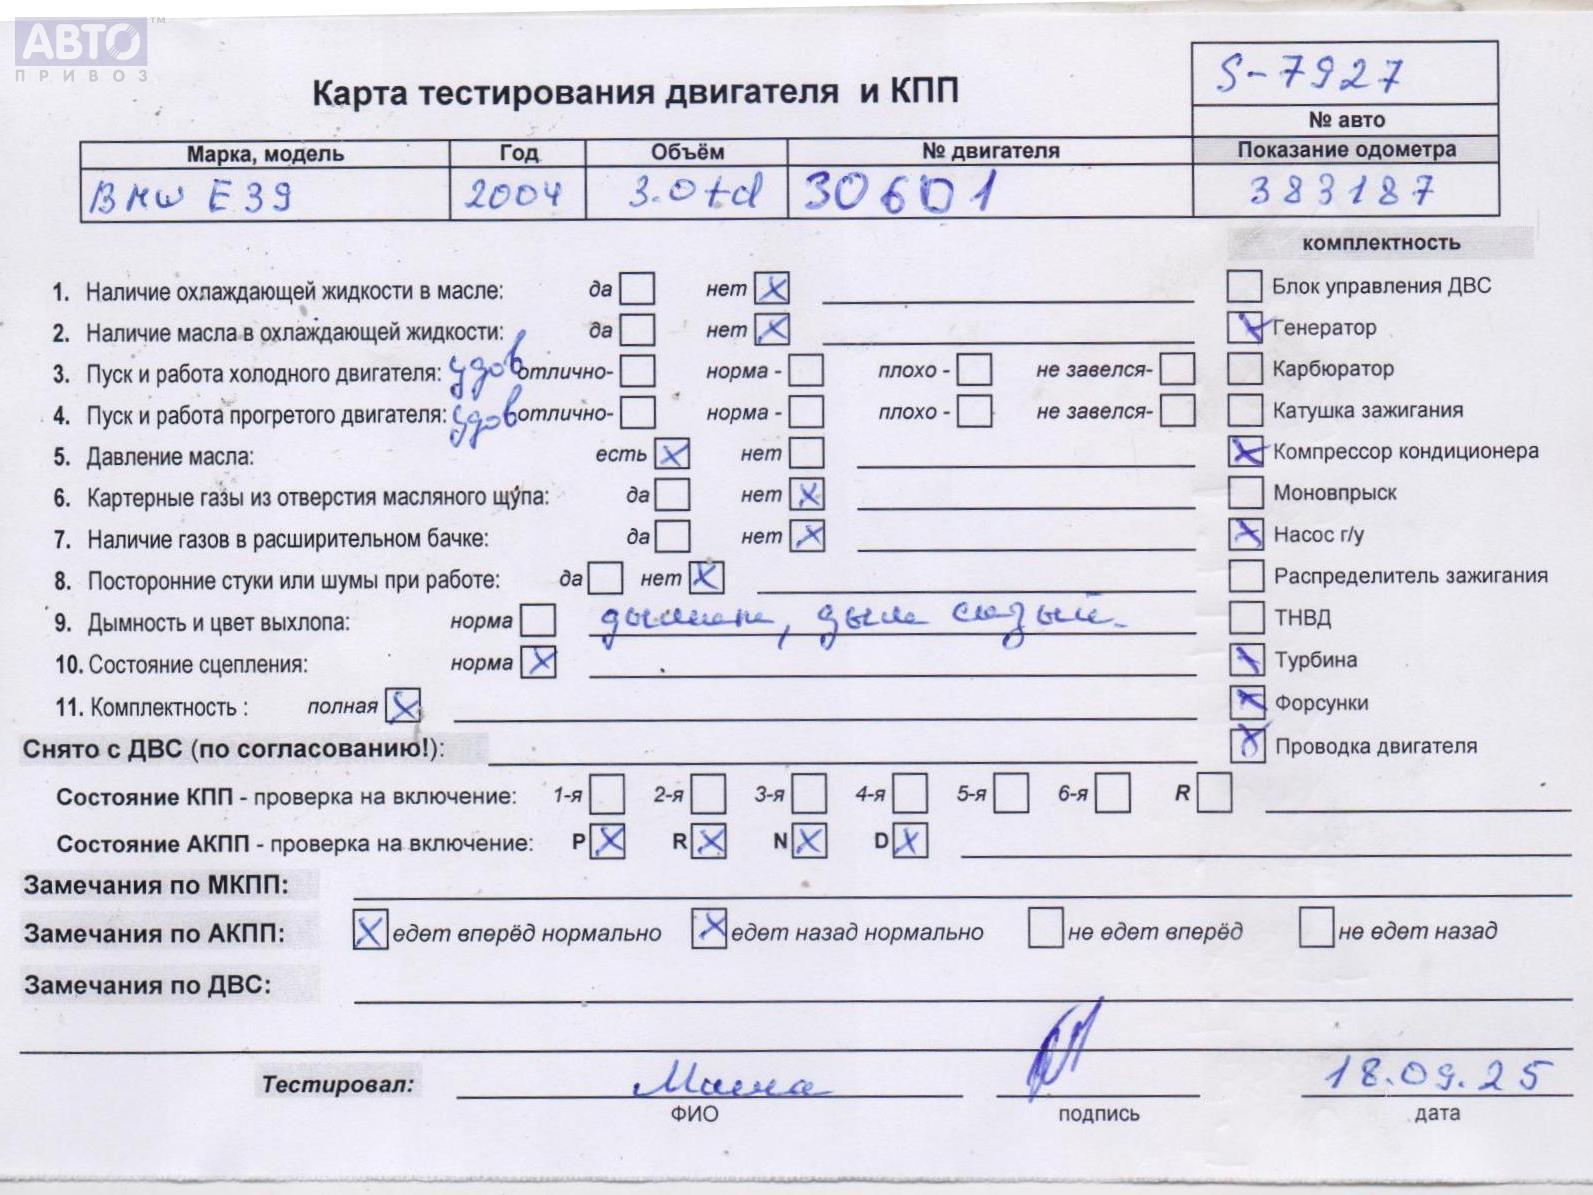 АВТО ™
ПРИВОЗ
S-7927
Карта тестирования двигателя и КПП
№ авто
Марка, модель Год Объём № двигателя Показание одометра
BMW E39 2004 3.0td 30601 383187
комплектность
1. Наличие охлаждающей жидкости в масле: да нет X Блок управления ДВС
2. Наличие масла в охлаждающей жидкости: да нет X X Генератор
3. Пуск и работа холодного двигателя: удов отлично- норма - плохо - не завелся- Карбюратор
4. Пуск и работа прогретого двигателя: удов отлично- норма - плохо - не завелся- Катушка зажигания
5. Давление масла: есть X нет X Компрессор кондиционера
6. Картерные газы из отверстия масляного щупа: да нет X Моновпрыск
7. Наличие газов в расширительном бачке: да нет X X Насос г/у
8. Посторонние стуки или шумы при работе: да нет X Распределитель зажигания
9. Дымность и цвет выхлопа: норма дым сизый. ТНВД
10. Состояние сцепления: норма X X Турбина
11. Комплектность : полная X X Форсунки
Снято с ДВС (по согласованию!): X Проводка двигателя
Состояние КПП - проверка на включение: 1-я 2-я 3-я 4-я 5-я 6-я R
Состояние АКПП - проверка на включение: P X R X N X D X
Замечания по МКПП:
Замечания по АКПП: X едет вперёд нормально X едет назад нормально не едет вперёд не едет назад
Замечания по ДВС:
Тестировал: 18.09.25
ФИО подпись дата